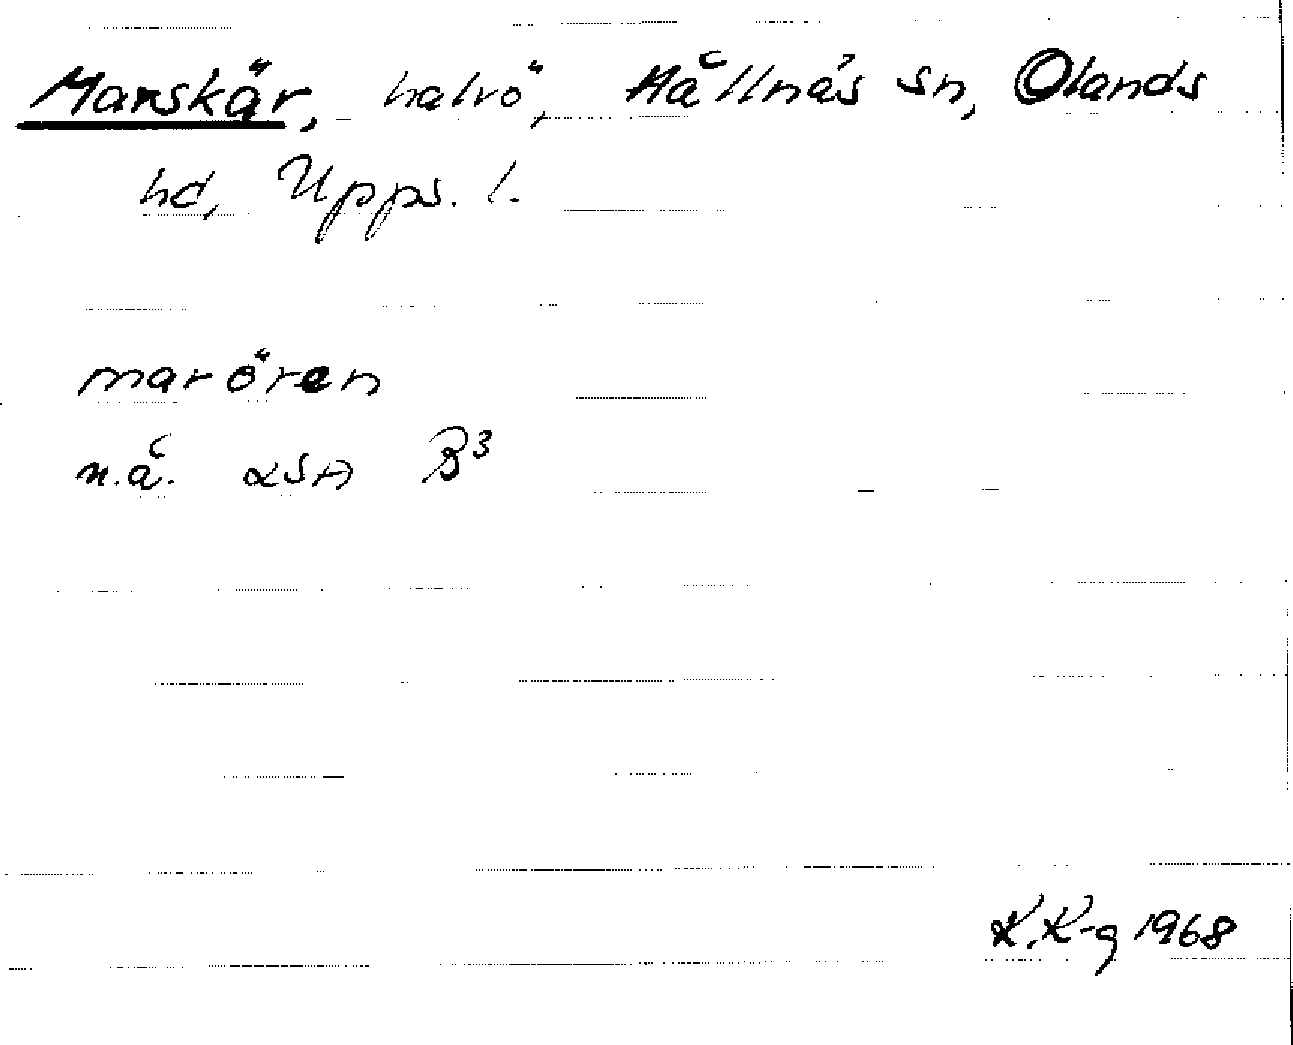 Marskär, halvö, Hållnäs sn, Olands
hd, Upps. l.
marören
n.å. LSA B³
K.K-g 1968